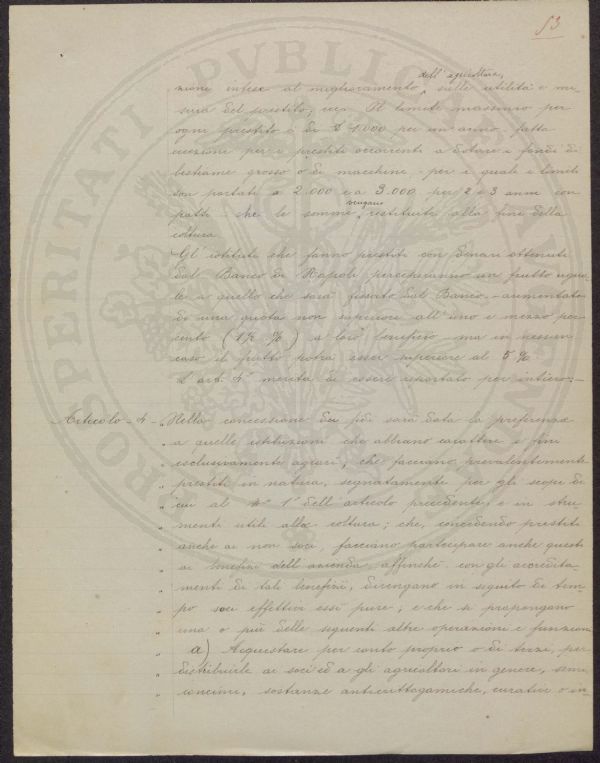 53
dell'agricoltura,
zione intese al miglioramento sulle utilità e mi-
sura del prestito, ecc. Il limite massimo per
ogni prestito è di £ 1000 per un anno, fatta
eccezione per i prestiti occorrenti a dotare i fondi di
bestiame grosso o di macchine, per i quali i limiti
son portati a 2.000 e a 3.000 per 2 e 3 anni con
patti che le somme vengano restituite alla fine della
coltura.
Gl'istituti che fanno prestiti con denari ottenuti
dal Banco di Napoli percepiranno un frutto ugua-
le a quello che sarà fissato dal Banco - aumentato
di una quota non superiore all'uno e mezzo per
cento (1½ %) a loro beneficio ma in nessun
caso il frutto potrà esser superiore al 5%.
L'art. 4° merita di essere riportato per intiero:-
Articolo - 4 - "Nella concessione dei fidi sarà data la preferenza
" a quelle istituzioni che abbiano carattere e fini
" esclusivamente agrari, che facciano prevalentemente
" prestiti in natura, segnatamente per gli scopi di
" cui al N° 1° dell'articolo precedente, e in stru-
" menti utili alla coltura; che, concedendo prestiti
" anche ai non soci, facciano partecipare anche questi
" ai benefizi dell'azienda, affinchè con gli accredita-
" menti di tali benefizii, divengano in seguito di tem-
" po soci effettivi essi pure; e che si propongano
" una o più delle seguenti altre operazioni e funzioni
" a) Acquistare per conto proprio o di terzi, per
" distribuirle ai soci ed a gli agricoltori in genere, semi
" concimi, sostanze anticrittogamiche, curative o in-
PROSPERITATI PVBLICAE